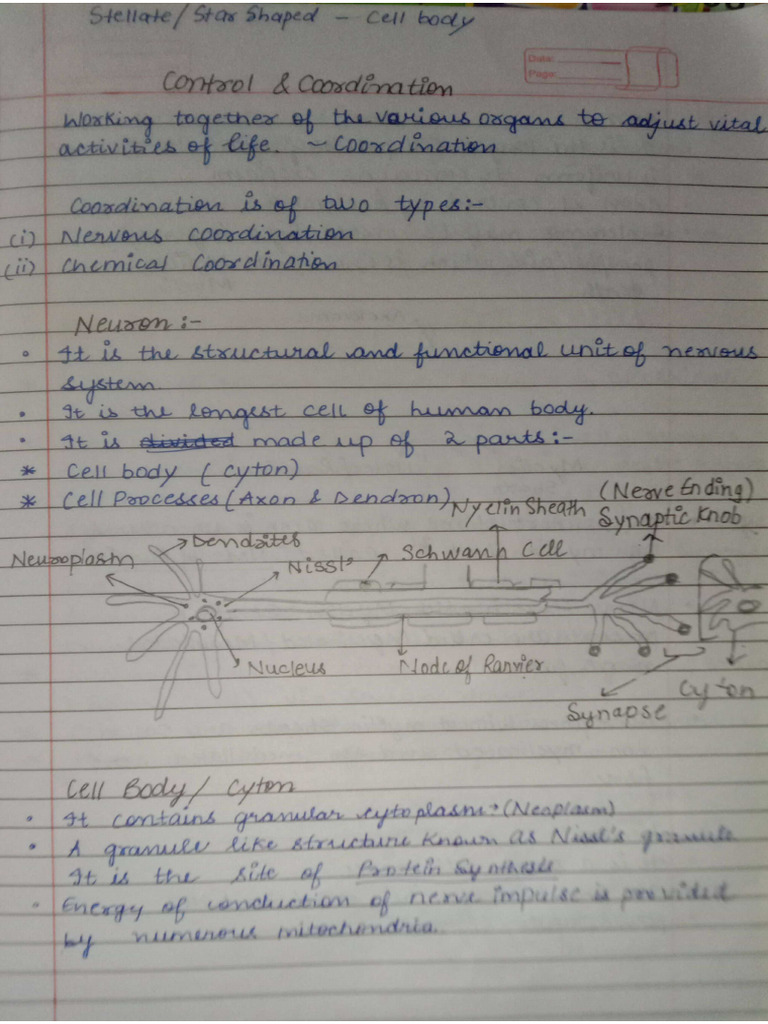 Stellate/Star Shaped - Cell body
Date:
Page:
Control & Coordination
Working together of the various organs to adjust vital
activities of life. ~ Coordination
Coordination is of two types:-
(i) Nervous coordination
(ii) Chemical Coordination
Neuron :-
• It is the structural and functional unit of nervous
system.
• It is the longest cell of human body.
• It is divided made up of 2 parts:-
* Cell body (Cyton)
* Cell Processes (Axon & Dendron)
Myelin Sheath
(Nerve Ending)
Synaptic Knob
Dendrites
Neuroplasm
Nissl's
Schwann Cell
Nucleus
Node of Ranvier
Synapse
Cyton
Cell Body/ Cyton
• It contains granular cytoplasm. (Neoplasm)
• A granule like structure known as Nissl's granule
It is the site of Protein Synthesis
• Energy of conduction of nerve impulse is provided
by numerous mitochondria.